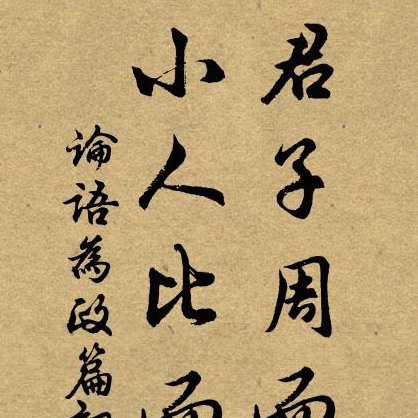 君子周而
小人比而
論語為政篇